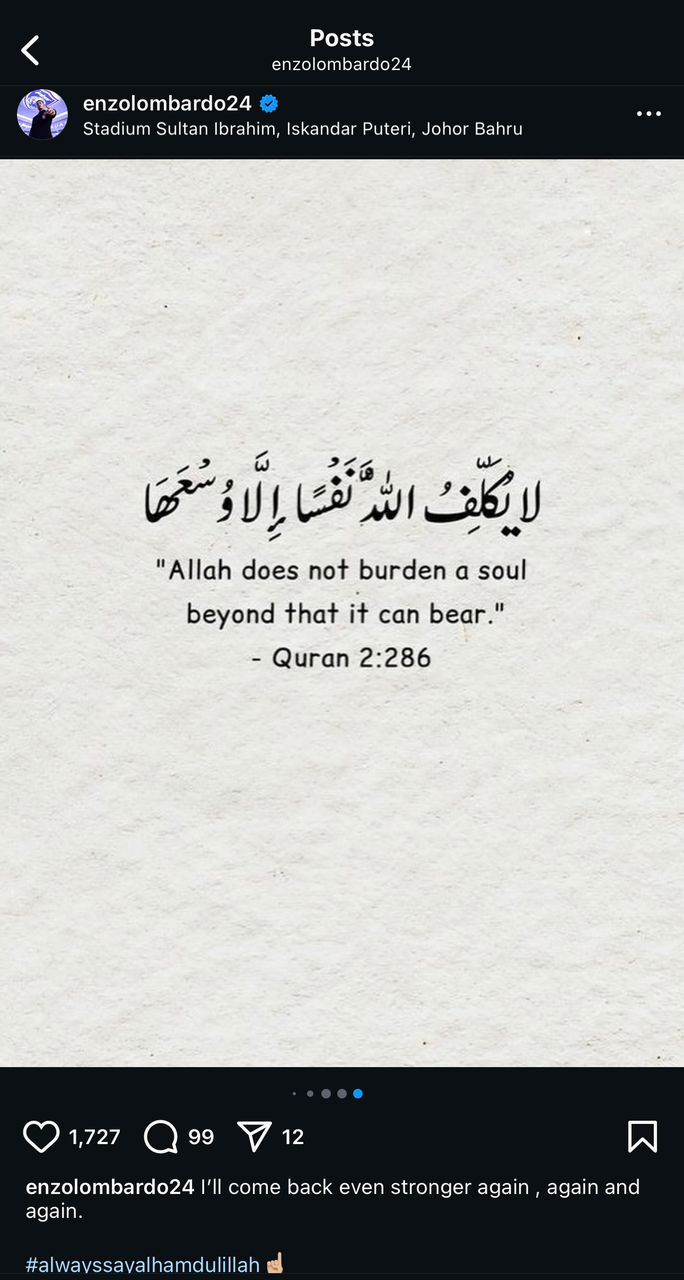 Posts
enzolombardo24
enzolombardo24
Stadium Sultan Ibrahim, Iskandar Puteri, Johor Bahru
لَا يُكَلِّفُ اللَّهُ نَفْسًا إِلَّا وُسْعَهَا
"Allah does not burden a soul
beyond that it can bear."
- Quran 2:286
1,727 99 12
enzolombardo24 I’ll come back even stronger again , again and
again.
#alwayssayalhamdulillah☝🏼